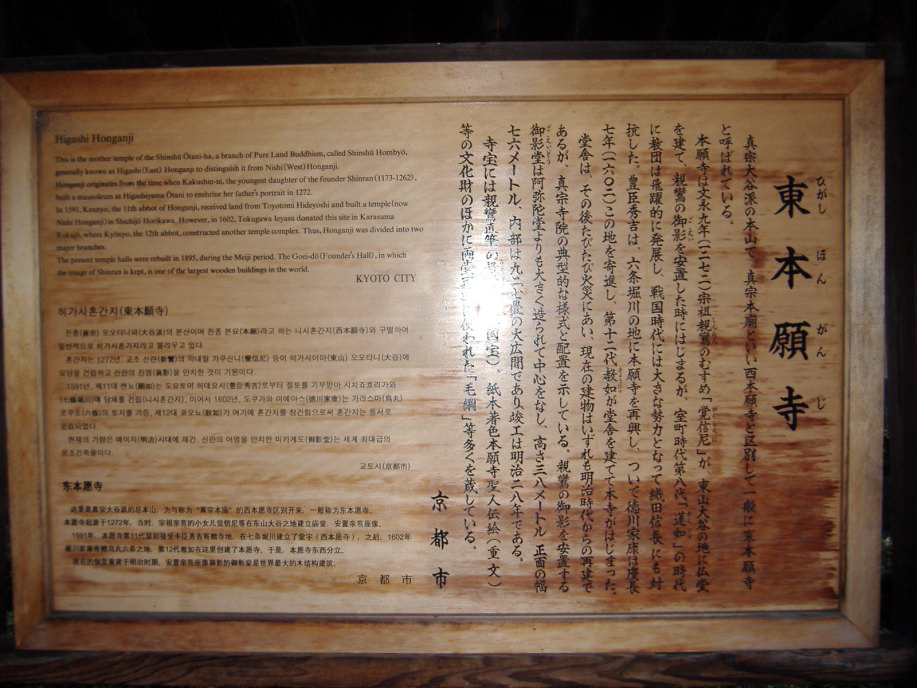 Higashi Honganji
This is the mother temple of the Shinshū Ōtani-ha, a branch of Pure Land Buddhism, called Shinshū Hombyō,
generally known as Higashi(East) Honganji to distinguish it from Nishi(West)Honganji.
Honganji originates from the time when Kakushin-ni, the youngest daughter of the founder Shinran(1173-1262),
built a mausoleum at Higashiyama Ōtani to enshrine her father's portrait in 1272.
In 1591, Kennyo, the 11th abbot of Honganji, received land from Toyotomi Hideyoshi and built a temple(now
Nishi Honganji)in Shichijō Horikawa. However, in 1602, Tokugawa Ieyasu donated this site in Karasuma
Rokujō, where Kyōnyo, the 12th abbot, constructed another temple complex. Thus, Honganji was divided into two
major branches.
The present temple halls were rebuilt in 1895, during the Meiji period. The Goei-dō(Founder's Hall), in which
the image of Shinran is kept, is one of largest wooden buildings in the world.
KYOTO CITY
히가시혼간지(東本願寺)
진종(眞宗) 오오타니파(大谷派)의 본산이며 진종 본묘(本廟)라고 하는 니시혼간지(西本願寺)와 구별하여
일반적으로 히가시혼간지라고 불리우고 있다.
혼간지는 1272년, 교조 신란(親鸞)의 막내딸 가쿠신니(覺信尼) 등이 히가시야마(東山) 오오타니(大谷)에
묘당을 건립하고 신란의 진영(眞影)을 안치한 것이 기원이다.
1591년, 제11대 켄뇨(顯如)는 도요토미 히데요시(豊臣秀吉)로부터 절토를 기부받아 시치죠호리가와
(七條堀川)에 당채를 건립(니시혼간지), 이어서 1602년, 도쿠가와 이에야스(德川家康)는 가라스마(烏丸)
로쿠죠(六條)의 토지를 기증, 제12대 쿄오뇨(敎如)가 여기에 혼간지를 창건함으로써 혼간지는 동서로
분립되었다.
현재의 가람은 메이지(明治)시대에 재건, 신란의 어영을 안치한 미카게도(御影堂)는 세계 최대급의
목조건축물이다.
교토시(京都市)
东本愿寺
这里是真宗大谷派的总本山, 为与称为"真宗本庙"的西本愿寺区别开来, 一般称为东本愿寺。
本愿寺起源于1272年, 当时, 宗祖亲鸾的小女儿觉信尼等在东山大谷之地建立庙堂, 安置亲鸾座像。
1591年, 本愿寺第11代显如接受丰臣秀吉寄赠寺地, 在七条堀川建立了堂宇(西本愿寺)。之后, 1602年
德川家康寄赠乌丸六条之地, 第12代教如在这里创建了本愿寺, 于是, 本愿寺东西分立。
现在的伽蓝重建于明治时期, 安置亲鸾座像御影的御影堂是世界最大的木结构建筑。
京都市
東本願寺
真宗大谷派の本山で、真宗本廟といい西本願寺と区別して一般に東本願寺
と呼ばれている。
本願寺は文永九年(一二七二)宗祖親鸞のむすめ「覚信尼」が、東山大谷の地に仏堂
を建て、親鸞の御影を安置した時にはじまるが、室町時代第八代「蓮如」の時代
に教団は飛躍的に発展し、戦国時代には大きな勢力となって織田信長にも対
抗した。豊臣秀吉は、六条堀川の地に本願寺を再興し、ついで徳川家康は慶長
七年(一六〇二)この地を寄進し、第十二代教如が堂舎を建てて本寺がはじまった。
堂舎は、その後たびたび火災にあい、現在の建物はいずれも明治時代からの再建で
あるが、真宗寺院の典型的な様式と配置を示している。親鸞の御影を安置する
御影堂は阿弥陀堂よりも大きく造られて中心をなし、高さ三八メートル 正面の幅
七六メートル、内部は九二七畳の大広間であり、竣工は明治二八年である。
寺宝には親鸞真筆の 国宝)、紙本著色本願寺聖人伝絵(重文)
等の文化財のほかに両堂再 使われた「毛綱」等多くを蔵している。
京都市